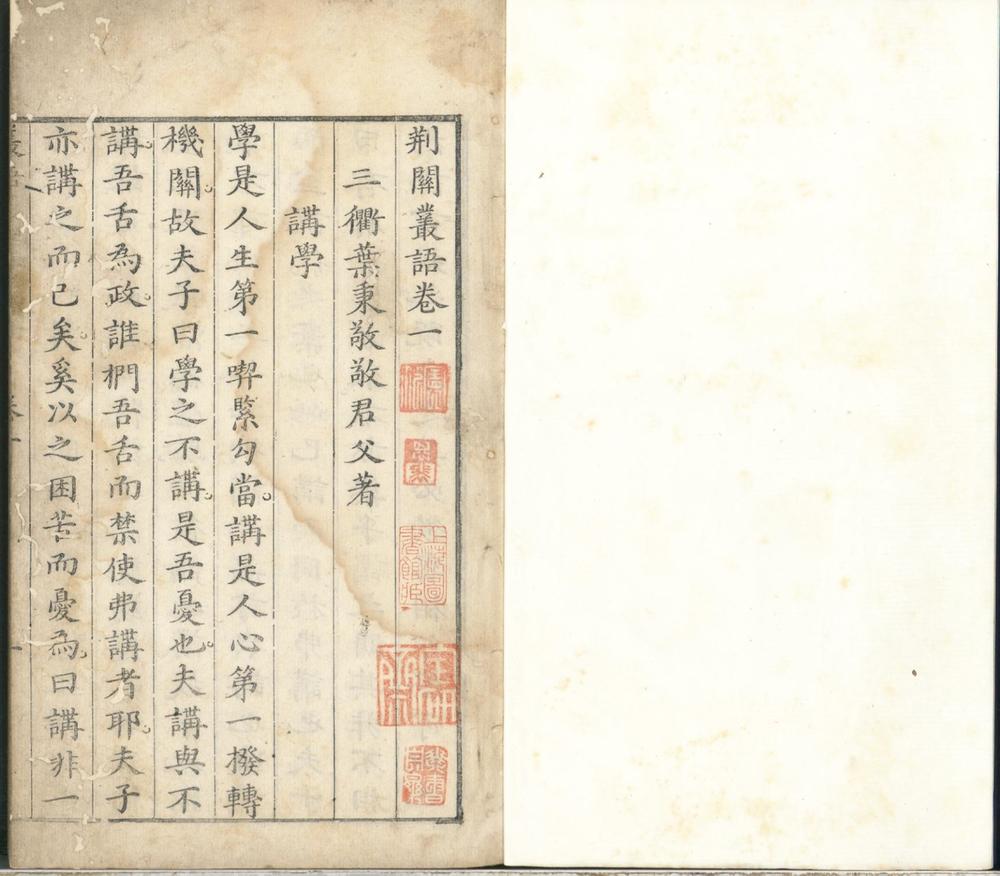 荆關叢語卷一
三衢葉秉敬敬君父著
講學
學是人生第一喫緊勾當。講是人心第一撥轉
機關。故夫子曰學之不講。是吾憂也。夫講與不
講。吾舌為政。誰捫吾舌而禁使弗講者耶。夫子
亦講之而已矣。奚以之困苦而憂為。曰講非一
上海圖書館藏